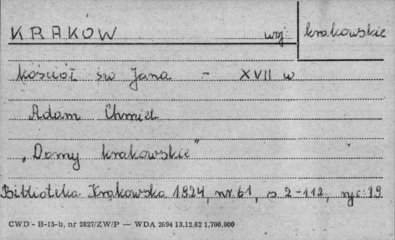 KRAKÓW woj. krakowskie
kościół św Jana - XVII w
Adam Chmiel
„Domy krakowskie"
Biblioteka Krakowska 1924, nr 61, s 2-112, ryc. 19
CWD - B-15-b, nr 2827/ZW/P — WDA 2694 13.12.62 1.700.000